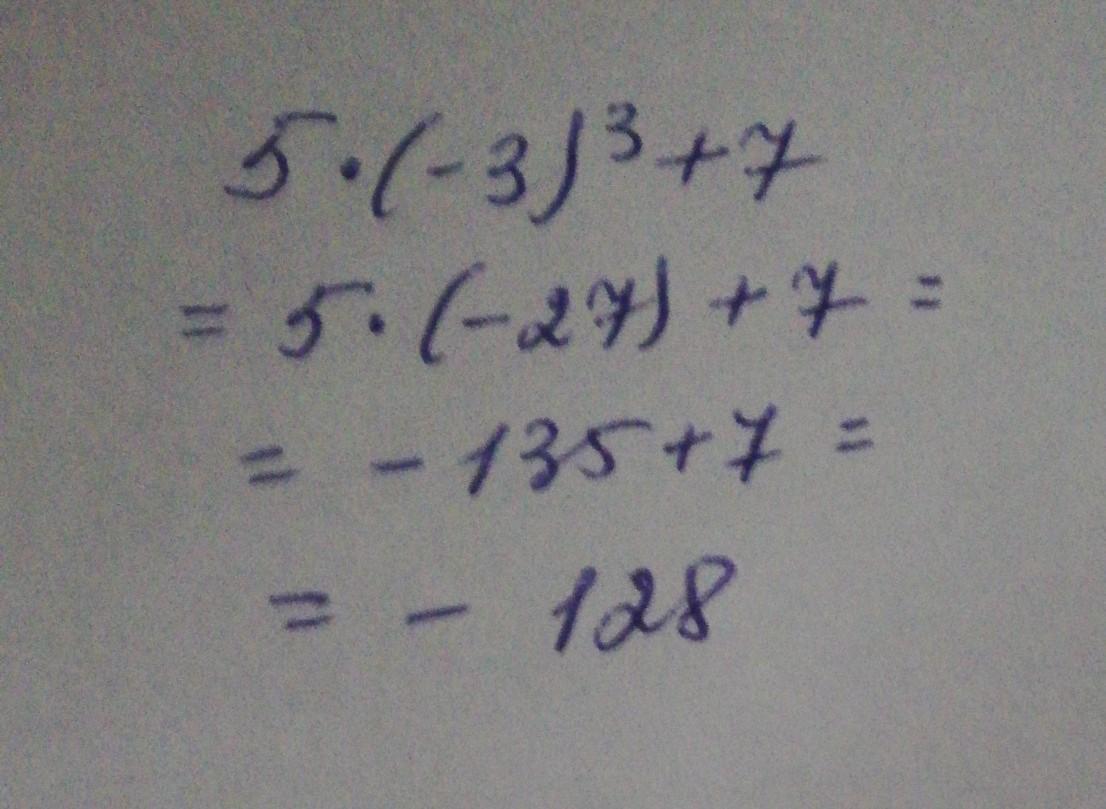 5·(-3)³+7
= 5·(-27)+7 =
= -135+7 =
= - 128